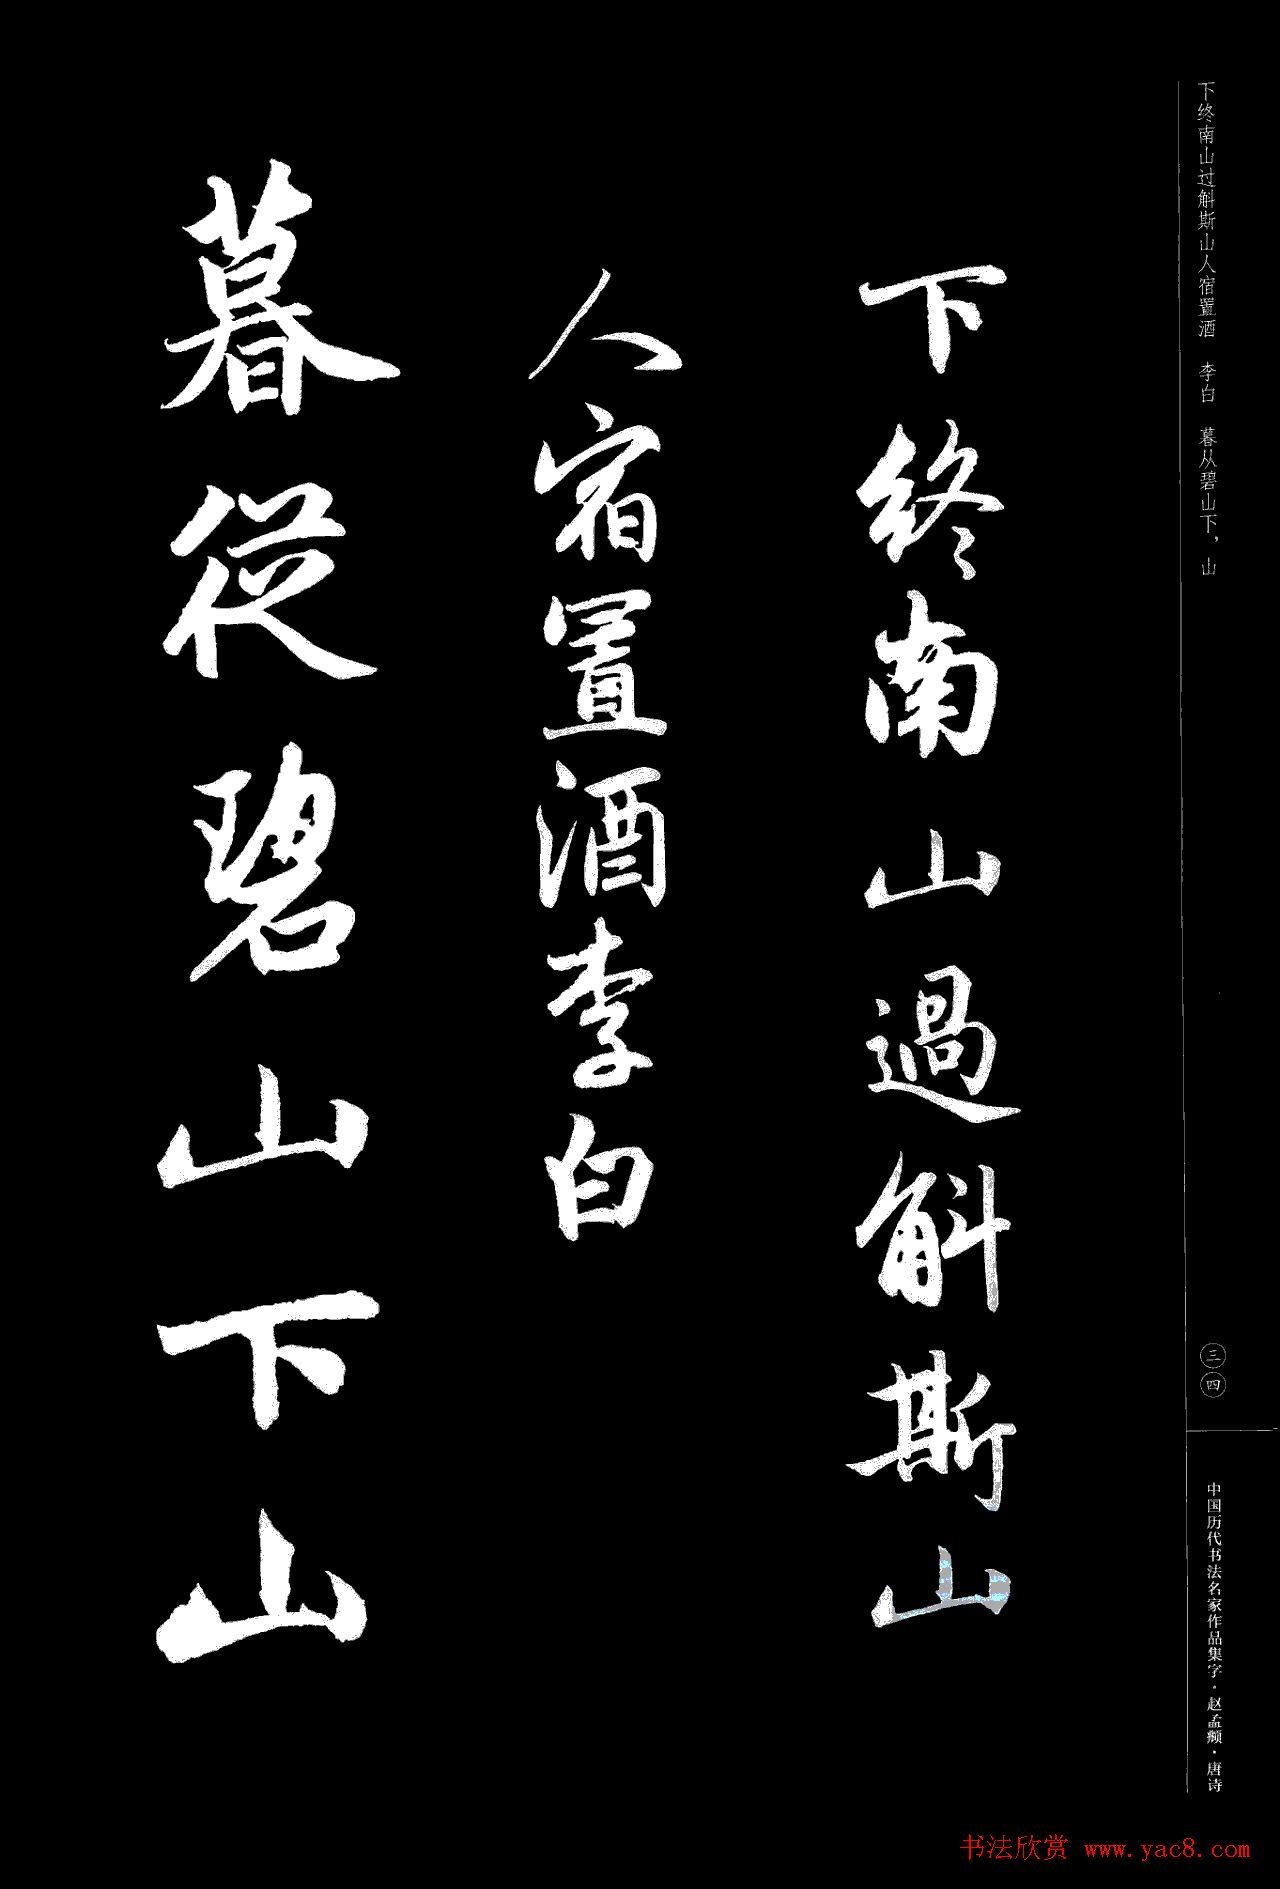 下终南山过斛斯山人宿置酒　李白　暮从碧山下，山
下終南山過斛斯山
人宿置酒李白
暮從碧山下山
三四
中国历代书法名家作品集字·赵孟頫·唐诗
书法欣赏 www.yac8.com